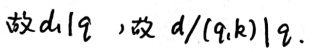 故 d₁|q ，故 d/(q,k)|q.